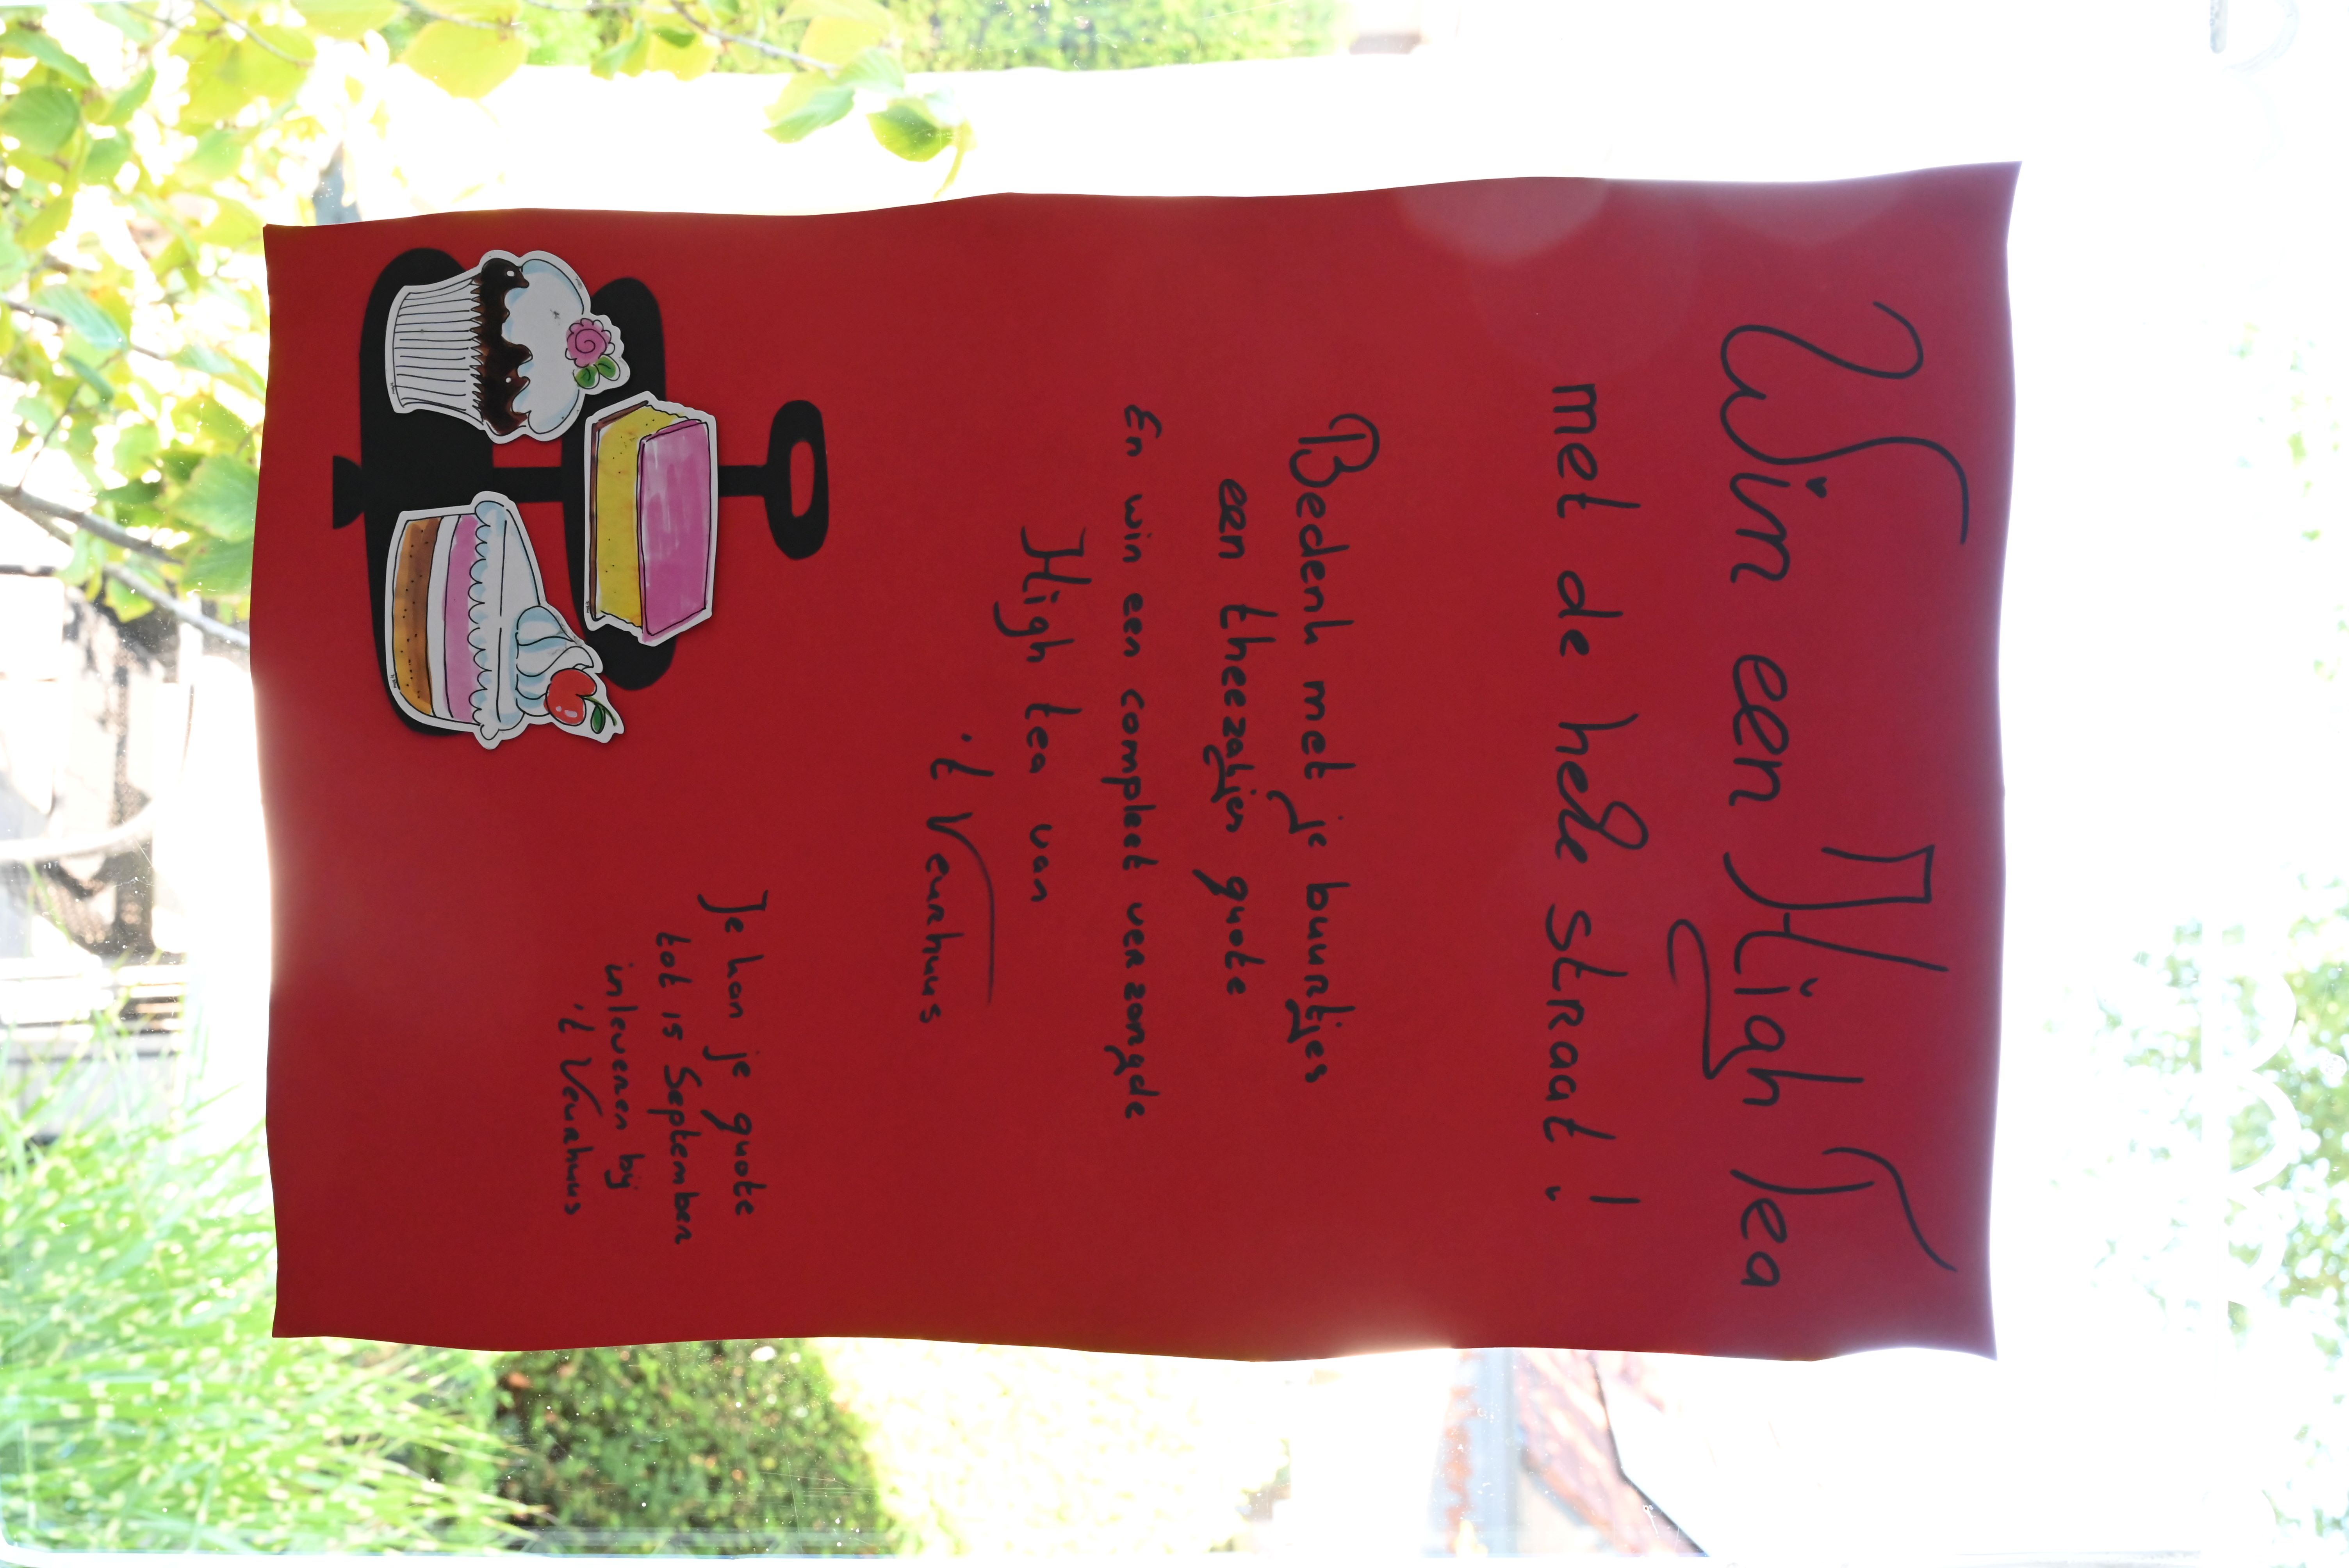 Win een High Tea
met de hele straat!
Bedenk met je buurtjes
een theezakjes quote
En win een compleet verzorgde
High tea van
't Veurhuus
Je kan je quote
tot 15 September
inleveren bij
't Veurhuus